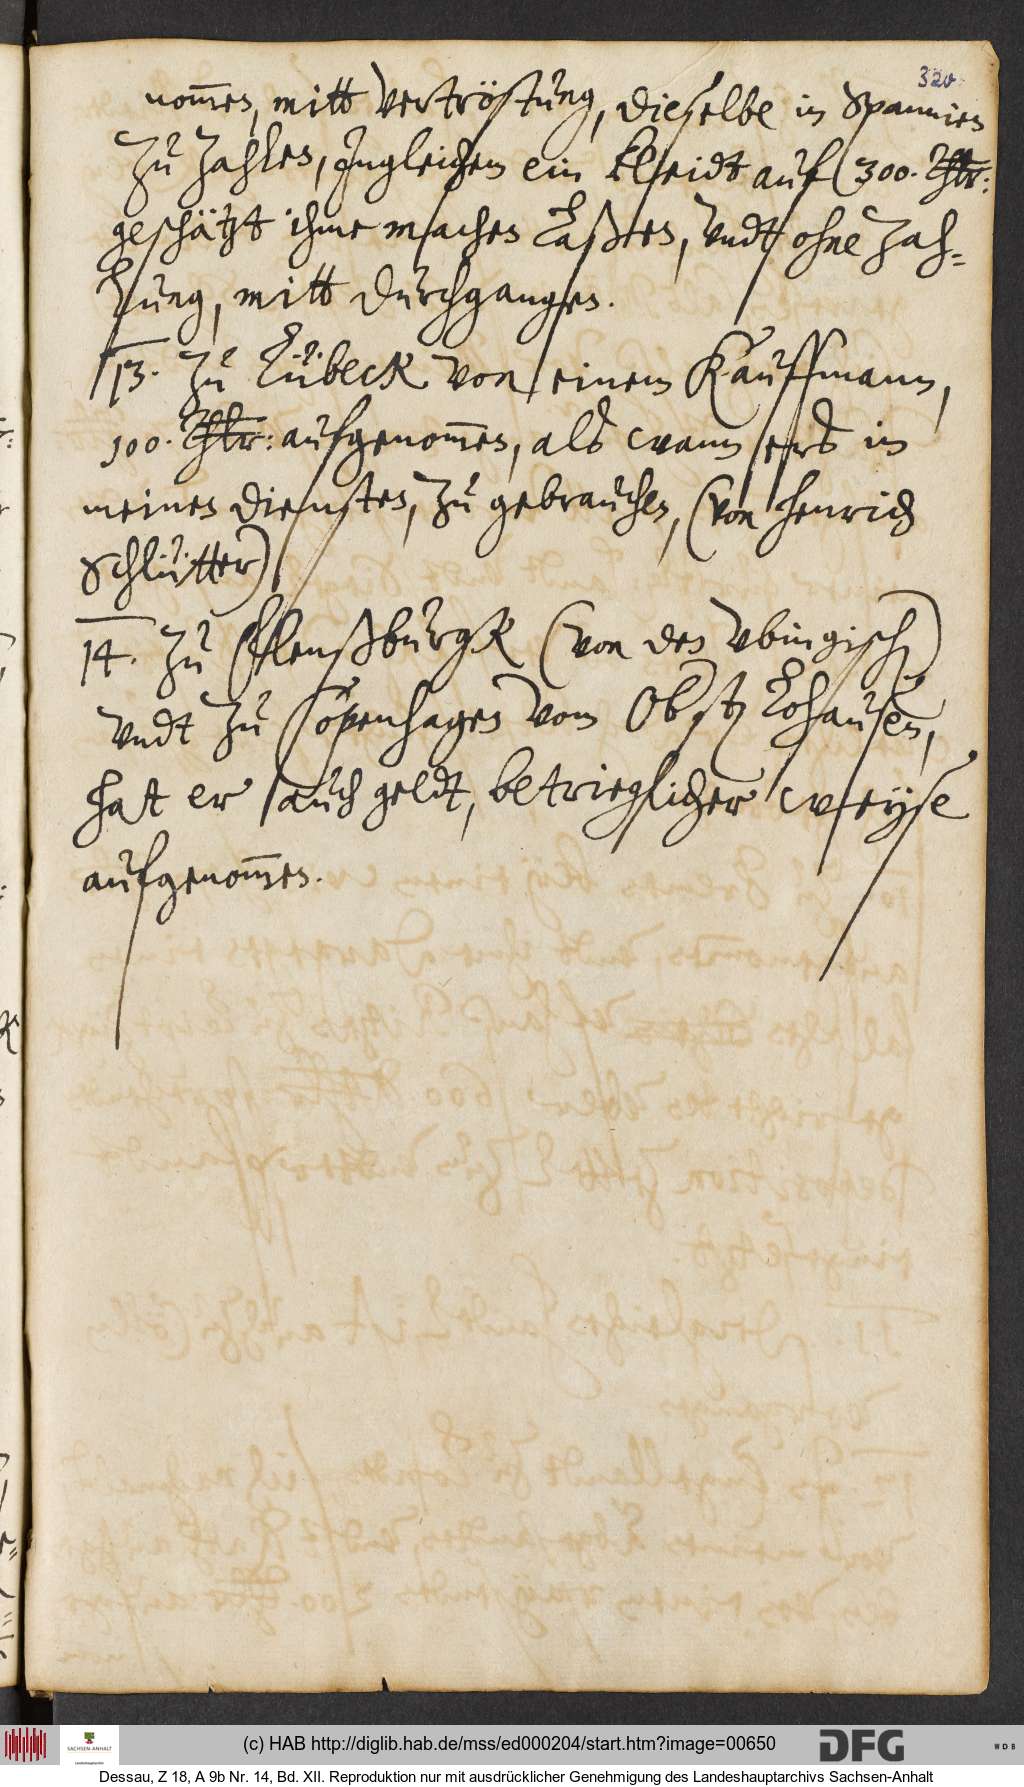 320.
nom̄en, mitt vertröstung, dieselbe in Spannien
zu zahlen, Jngleichem ein kleidt auf 300. Thlr:
geschätzt ihme machen laßen, vndt ohne zah-
lung, mitt durchgangen.
13. Zu Lübeck von einem Kauffmann,
100. Thlr: aufgenom̄en, als wann ers in
meinen diensten, zu gebrauchen, (von Henrich
Schlütter)
14. Zu Flenßburgk (von den )
vndt zu Copenhagen vom Ob. Lohausen,
hat er auch geldt, betrieglicher weyse
aufgenom̄en.
SACHSEN-ANHALT
Landeshauptarchiv
(c) HAB http://diglib.hab.de/mss/ed000204/start.htm?image=00650
DFG
WDB
Dessau, Z 18, A 9b Nr. 14, Bd. XII. Reproduktion nur mit ausdrücklicher Genehmigung des Landeshauptarchivs Sachsen-Anhalt